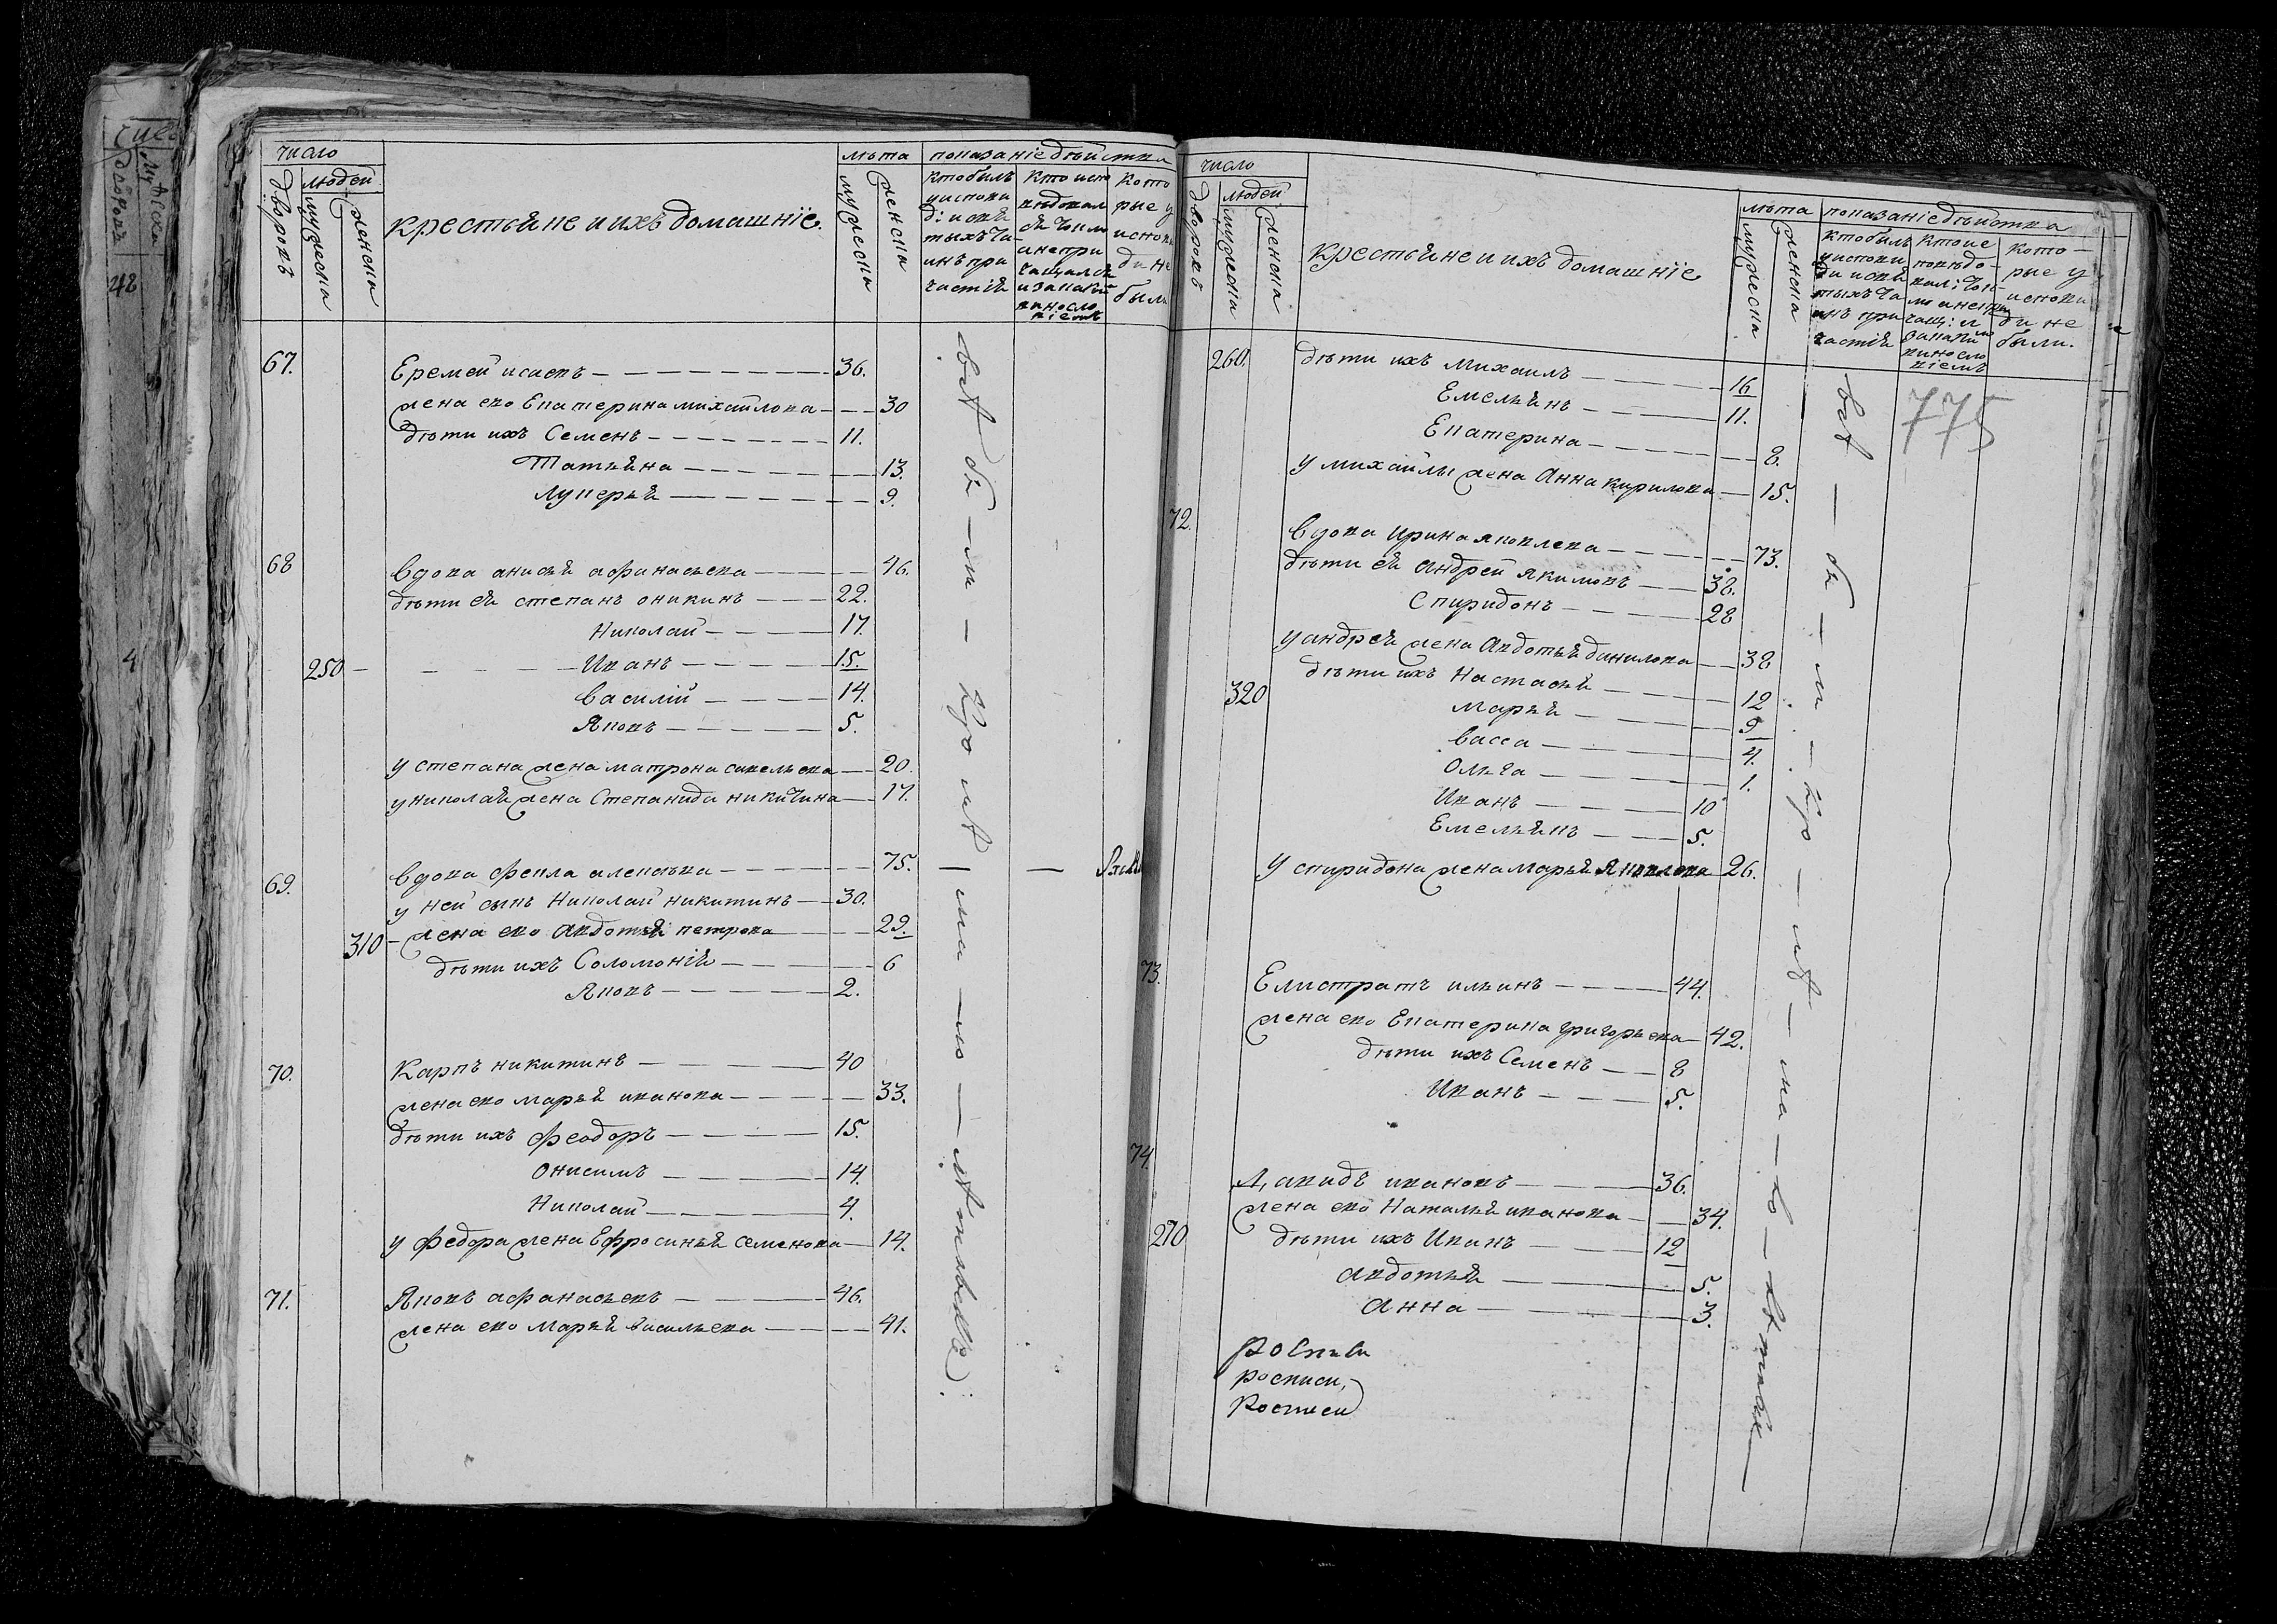 число
дворовъ
людей
мужеска
женска
крестьяне и ихъ домашніе
лѣта
мужеска
женска
показаніе действа
кто былъ
у исповѣ
ди и свя
тыхъ та
инъ при
частія
кто испо
вѣдовал
ся токмо
а не при
чащался
и за какимъ
винословіемъ
кото
рые у
исповѣ
ди не
были
67. Еремей исаевъ 36.
жена ево Екатерина михайлова 30
дѣти ихъ Семенъ 11.
Татьяна 13.
Лукерья 9.
68 вдова анисья афанасьева 46.
дѣти ея степанъ оникинъ 22.
Николай 17.
250 Иванъ 15.
василій 14.
Яковъ 5.
у степана жена матрона савельева 20.
у николая жена Степанида никитина 17.
69. вдова фекла алексѣева 75.
у ней сынъ Николай никитинъ 30.
310 жена ево авдотья петрова 29.
дѣти ихъ Соломонія 6
Яковъ 2.
70. Карпъ никитинъ 40
жена ево марья иванова 33.
дѣти ихъ феодоръ 15.
Онисимъ 14.
Николай 4.
у федора жена Ефросинья семенова 14.
71. Яковъ афанасьевъ 46.
жена ево марья васильева 41.
число
дворовъ
людей
мужеска
женска
крестьяне и ихъ домашніе
лѣта
мужеска
женска
показаніе действа
кто былъ
у исповѣ
ди и свя
тыхъ та
инъ при
частія
кото
рые у
исповѣ
ди не
были.
775
260. дѣти ихъ михаилъ 16
Емельянъ 11.
Екатерина 8.
у михайлы жена Анна кирилова 15.
72. вдова Ирина яковлева 73.
дѣти ея андрей якимовъ 38.
Спиридонъ 28
у андрея жена Авдотья данилова 38
дѣти ихъ Настасья 12
320 марья 9
васса 4.
Ольга 1.
Иванъ 10
Емельянъ 5.
У спиридона жена марья Яковлева 26.
73. Елистратъ ильинъ 44.
жена ево Екатерина григорьева 42.
дѣти ихъ Семенъ 8
Иванъ 5.
74. Давидъ ивановъ 36.
жена ево Наталья иванова 34.
270 дѣти ихъ Иванъ 12
авдотья 5.
анна 3.
Росписи
росписи,
Росписи